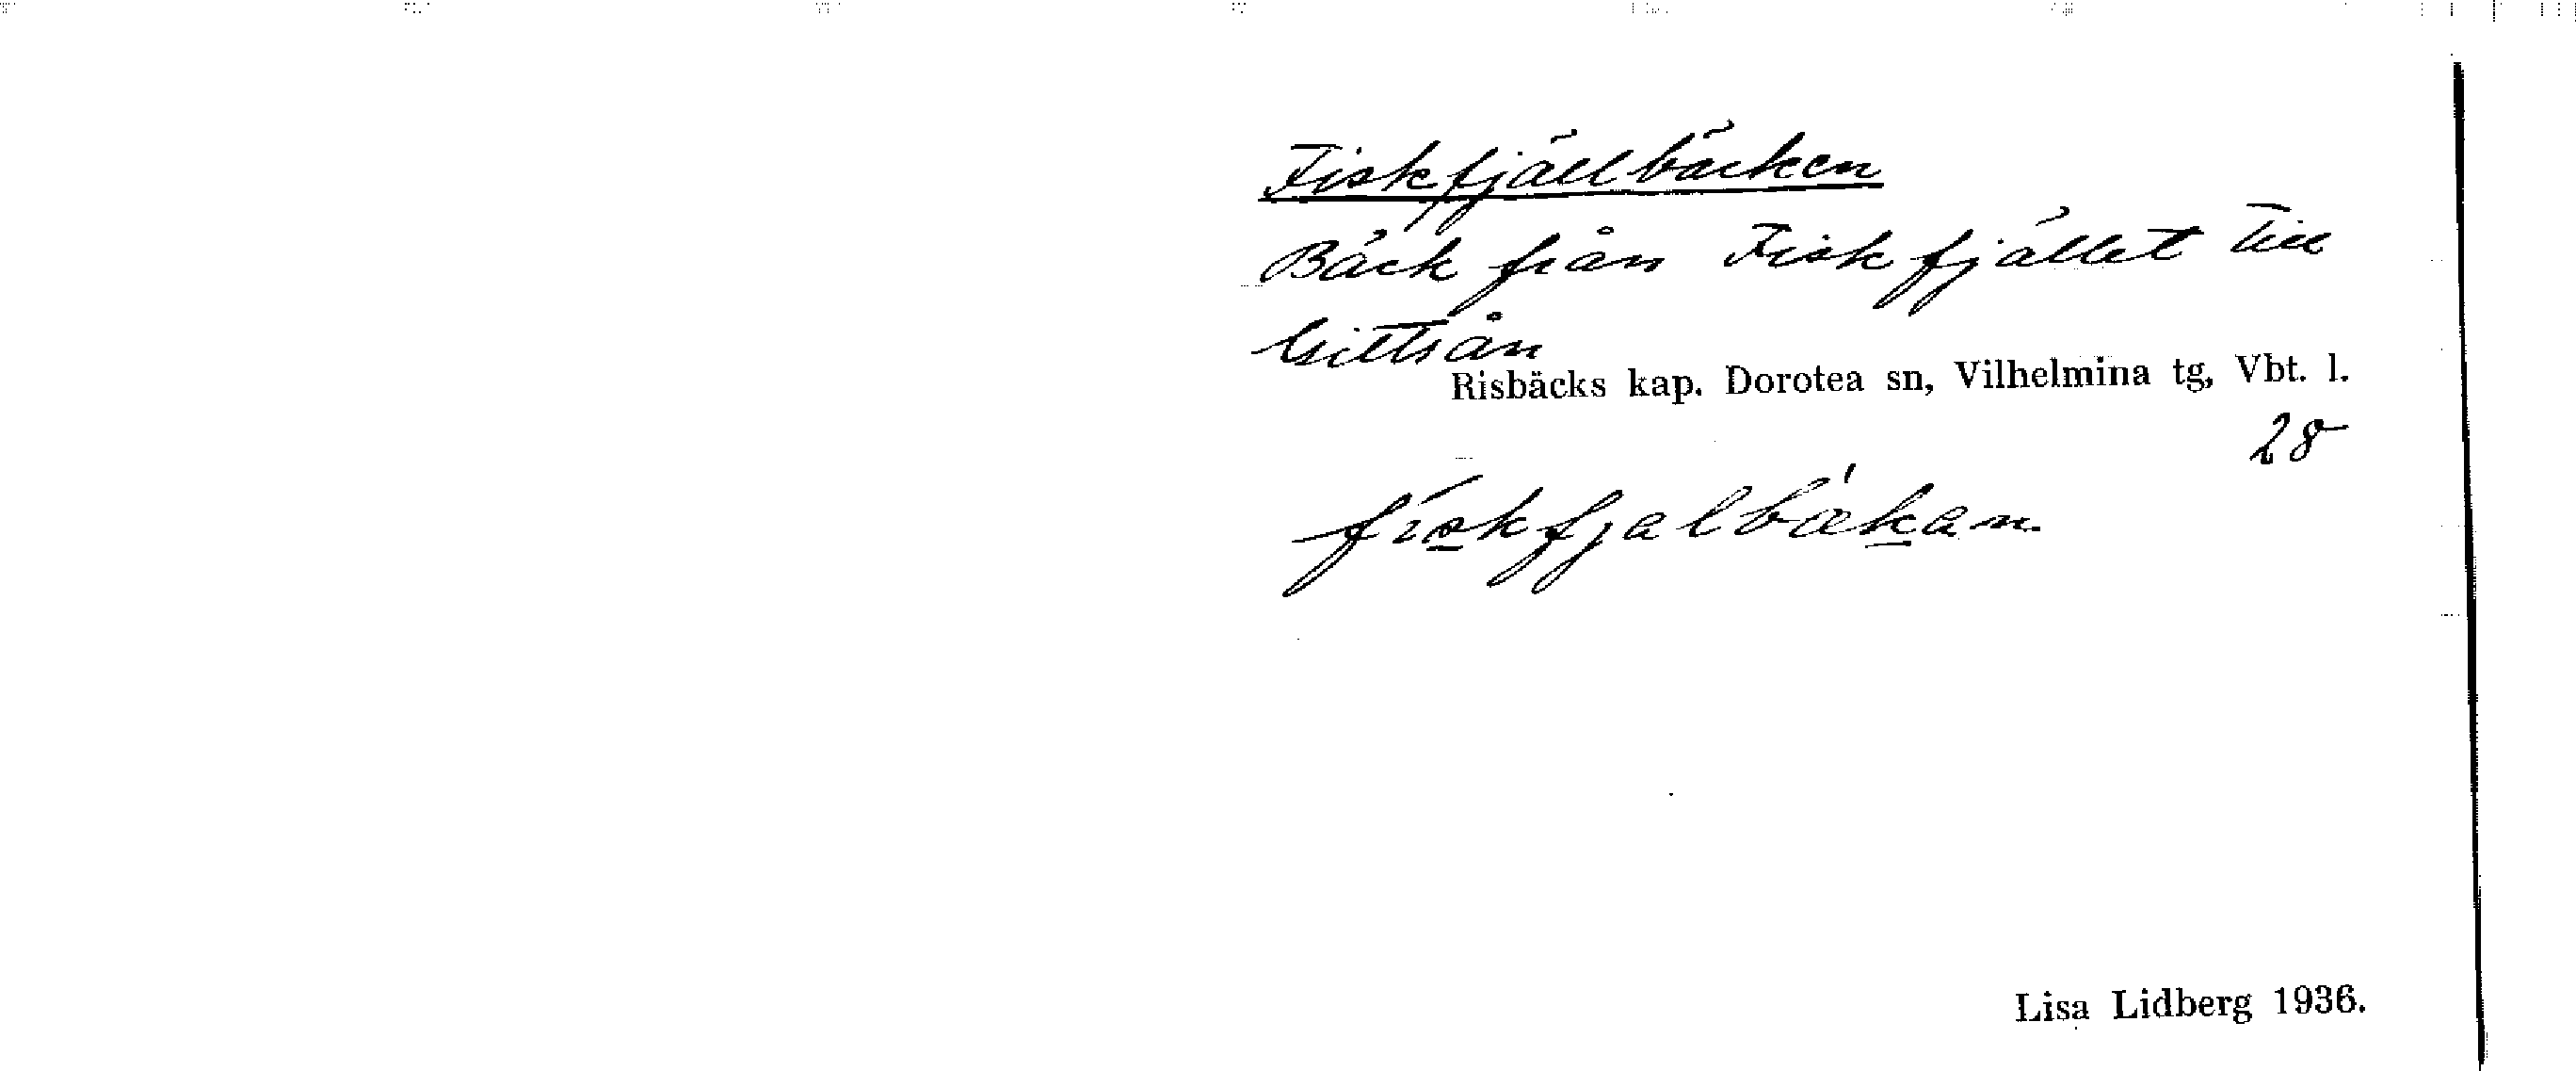 Fiskfjällbäcken
Bäck från Fiskfjället till
Gittsån
Risbäcks kap. Dorotea sn, Vilhelmina tg, Vbt. l.
28
fiskfjalbækan.
Lisa Lidberg 1936.